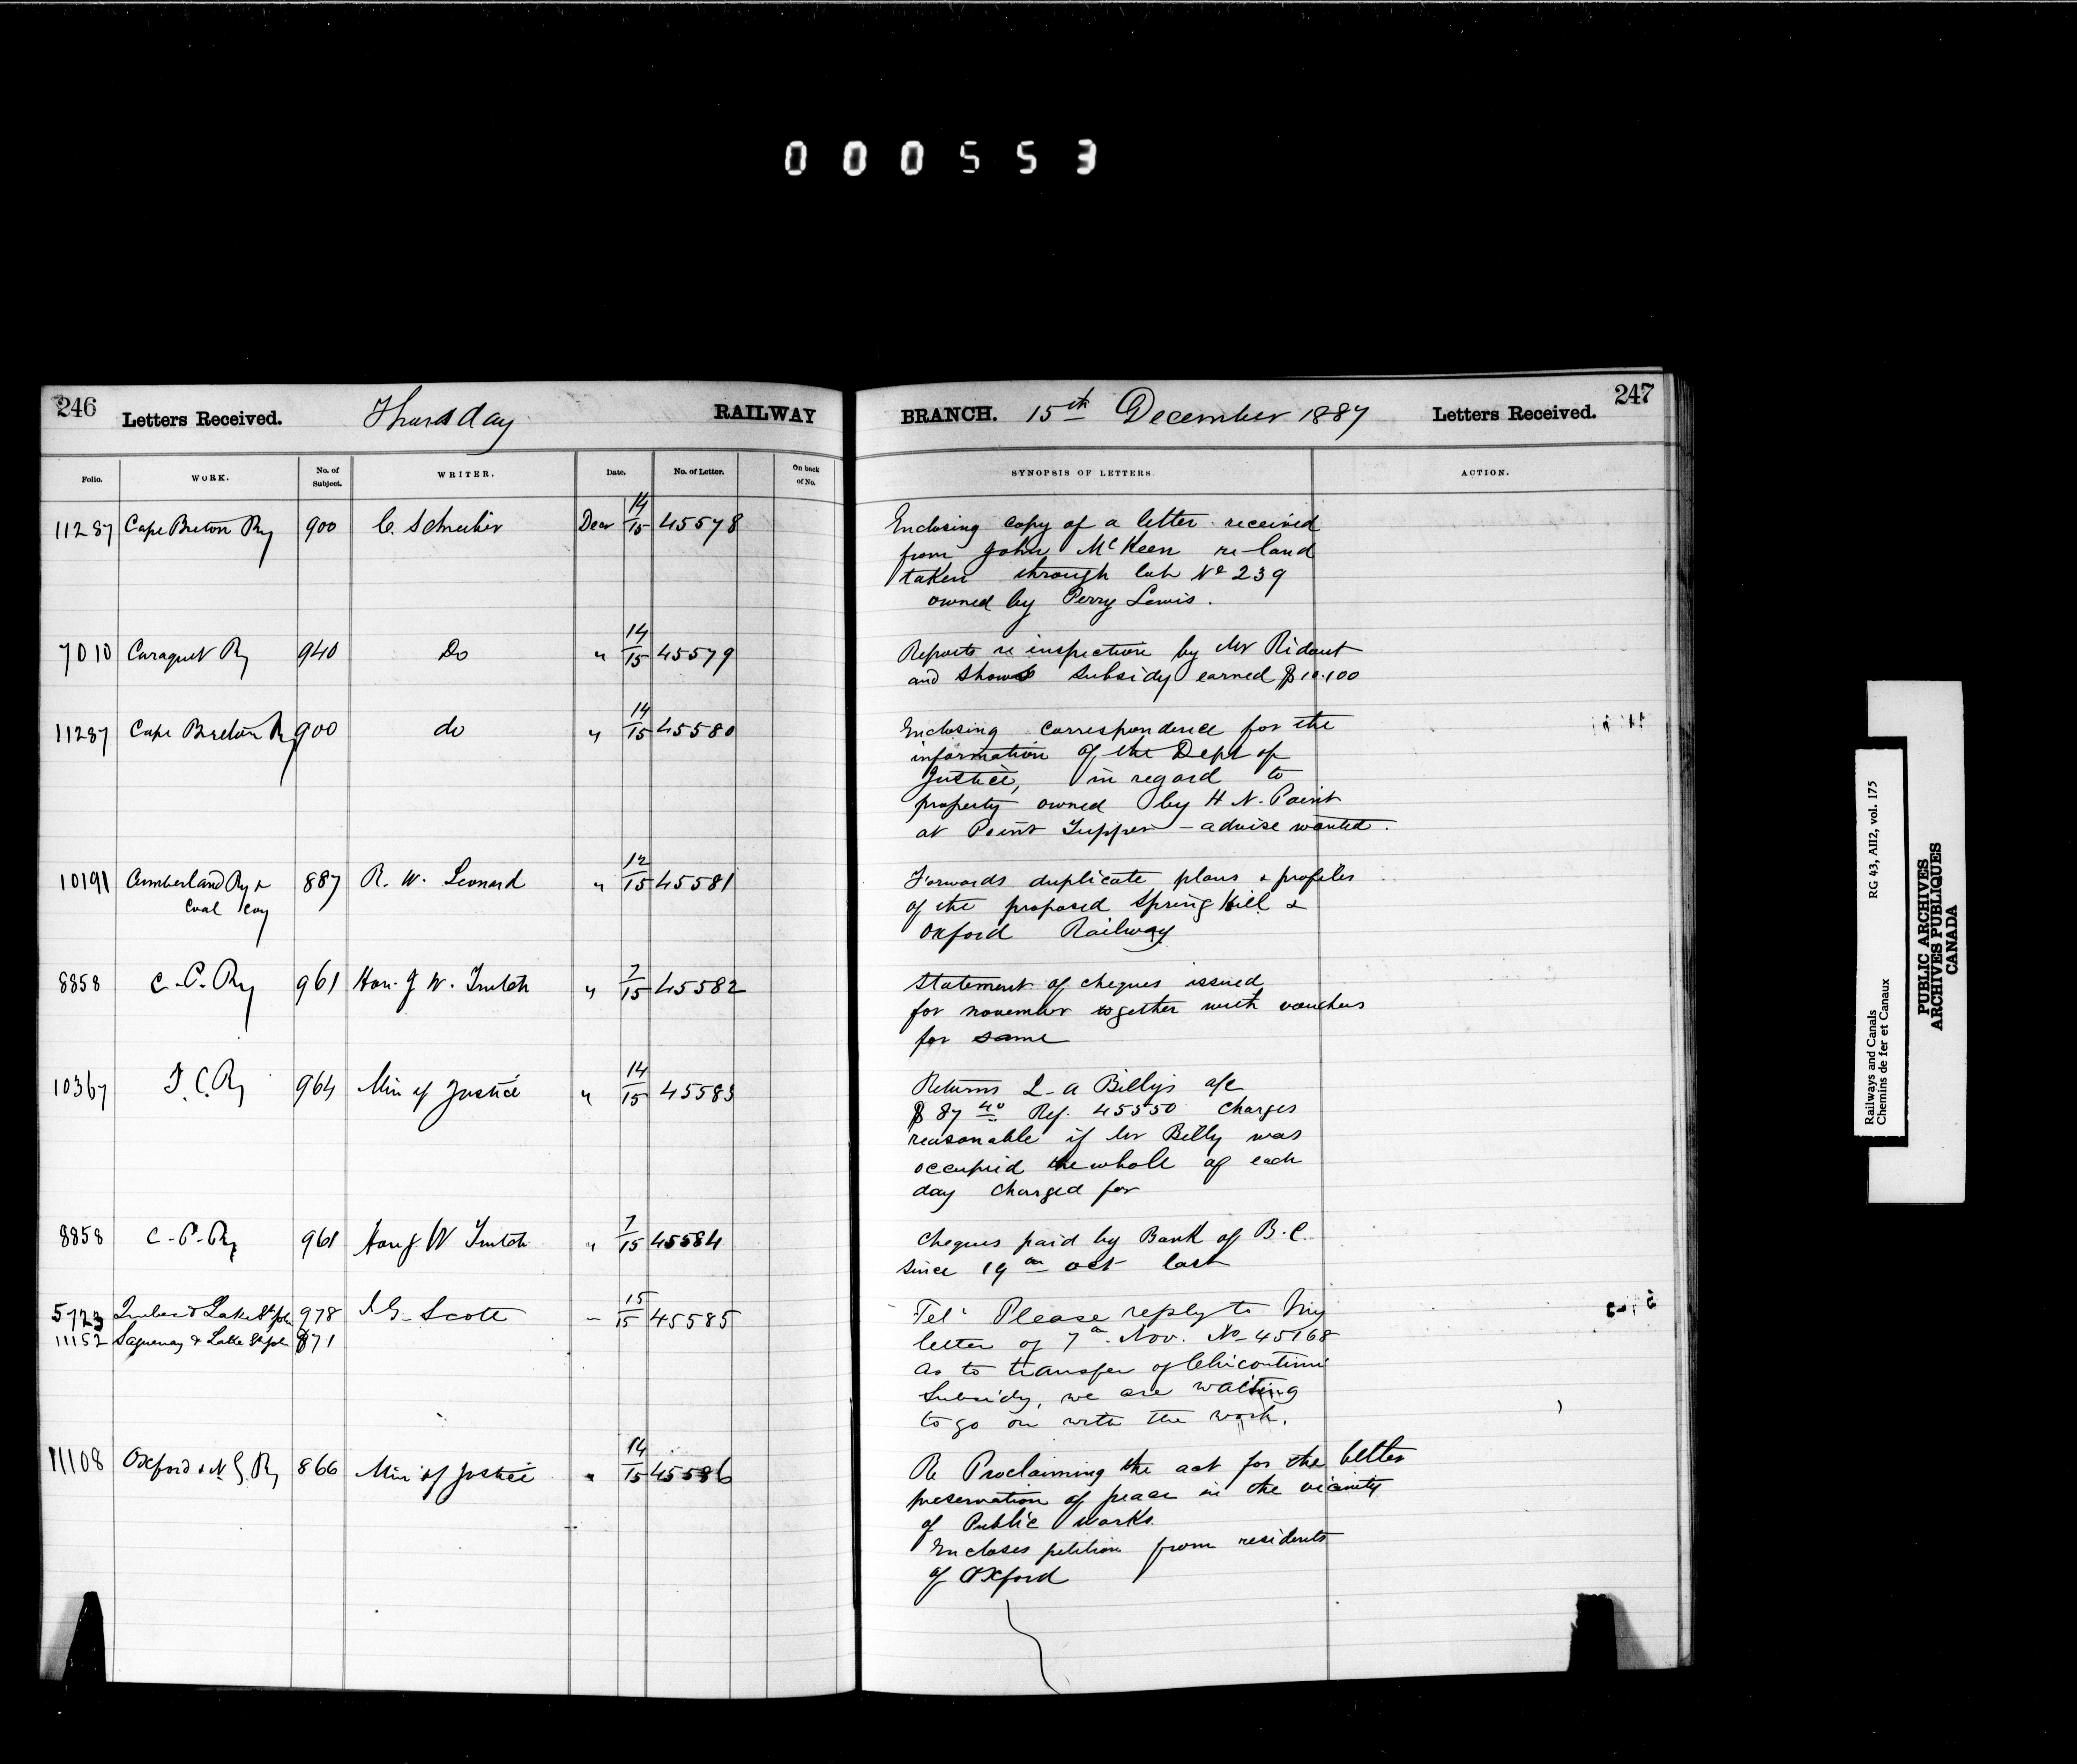 000553
246 Letters Received. Thursday RAILWAY
Folio. WORK. No. of Subject. WRITER. Date. No. of Letter. On back of No.
11287 Cape Breton Ry 900 C. Schreiber Decr 14/15 45578
7010 Caraquet Ry 940 Do " 14/15 45579
11287 Cape Breton Ry 900 do " 14/15 45580
10191 Cumberland Ry & 887 R. W. Leonard " 12/15 45581
Coal Coy
8858 C. P. Ry 961 Hon. J W. Trutch " 7/15 45582
10367 I. C. Ry 964 Min of Justice " 14/15 45583
8858 C-P-Ry 961 Hon J. W Trutch " 7/15 45584
5723 Quebec & Lake St John 978 J. G. Scott " 15/15 45585
11152 Saguenay & Lake St John 871
11108 Oxford & N. G. Ry 866 Min of Justice " 14/15 45586
BRANCH. 15th December 1887 Letters Received. 247
SYNOPSIS OF LETTERS. ACTION.
Enclosing copy of a letter received
from John McKeen re land
taken through lot No 239
owned by Perry Lewis.
Reports re inspection by Mr Ridout
and shows subsidy earned $10.100
Enclosing correspondence for the
information of the Dept of
Justice, in regard to
property owned by H N. Paint
at Point Tupper - advise wanted.
Forwards duplicate plans & profiles
of the proposed Spring Hill &
Oxford Railway
Statement of cheques issued
for november together with vouchers
for same
Returns L. A Billy's a/c
$87 40 Ref. 45550 Charges
reasonable if Mr Billy was
occupied the whole of each
day charged for
Cheques paid by Bank of B. C.
since 19th oct last
Tel. Please reply to my
letter of 7th Nov. No 45168
as to transfer of Chicoutimi
Subsidy, we are waiting
to go on with the work.
Re Proclaiming the act for the better
preservation of peace in the vicinity
of Public works.
Encloses petition from residents
of Oxford
Railways and Canals RG 43, AII2, vol. 175
Chemins de fer et Canaux
PUBLIC ARCHIVES
ARCHIVES PUBLIQUES
CANADA